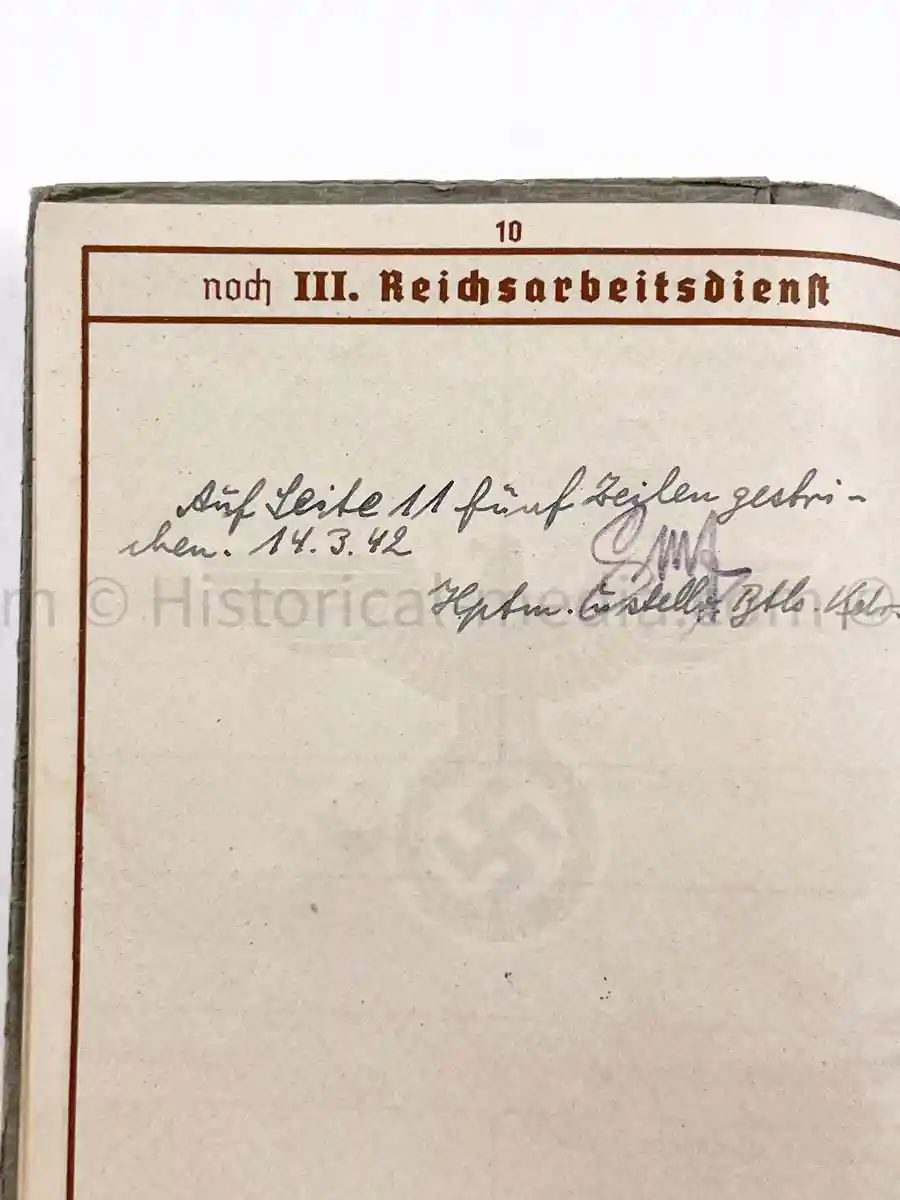 10
noch III. Reichsarbeitsdienst
Auf Seite 11 fünf Zeilen gestri-
chen. 14.3.42
Hptm. Btls.
© Historicalmedia.com ©